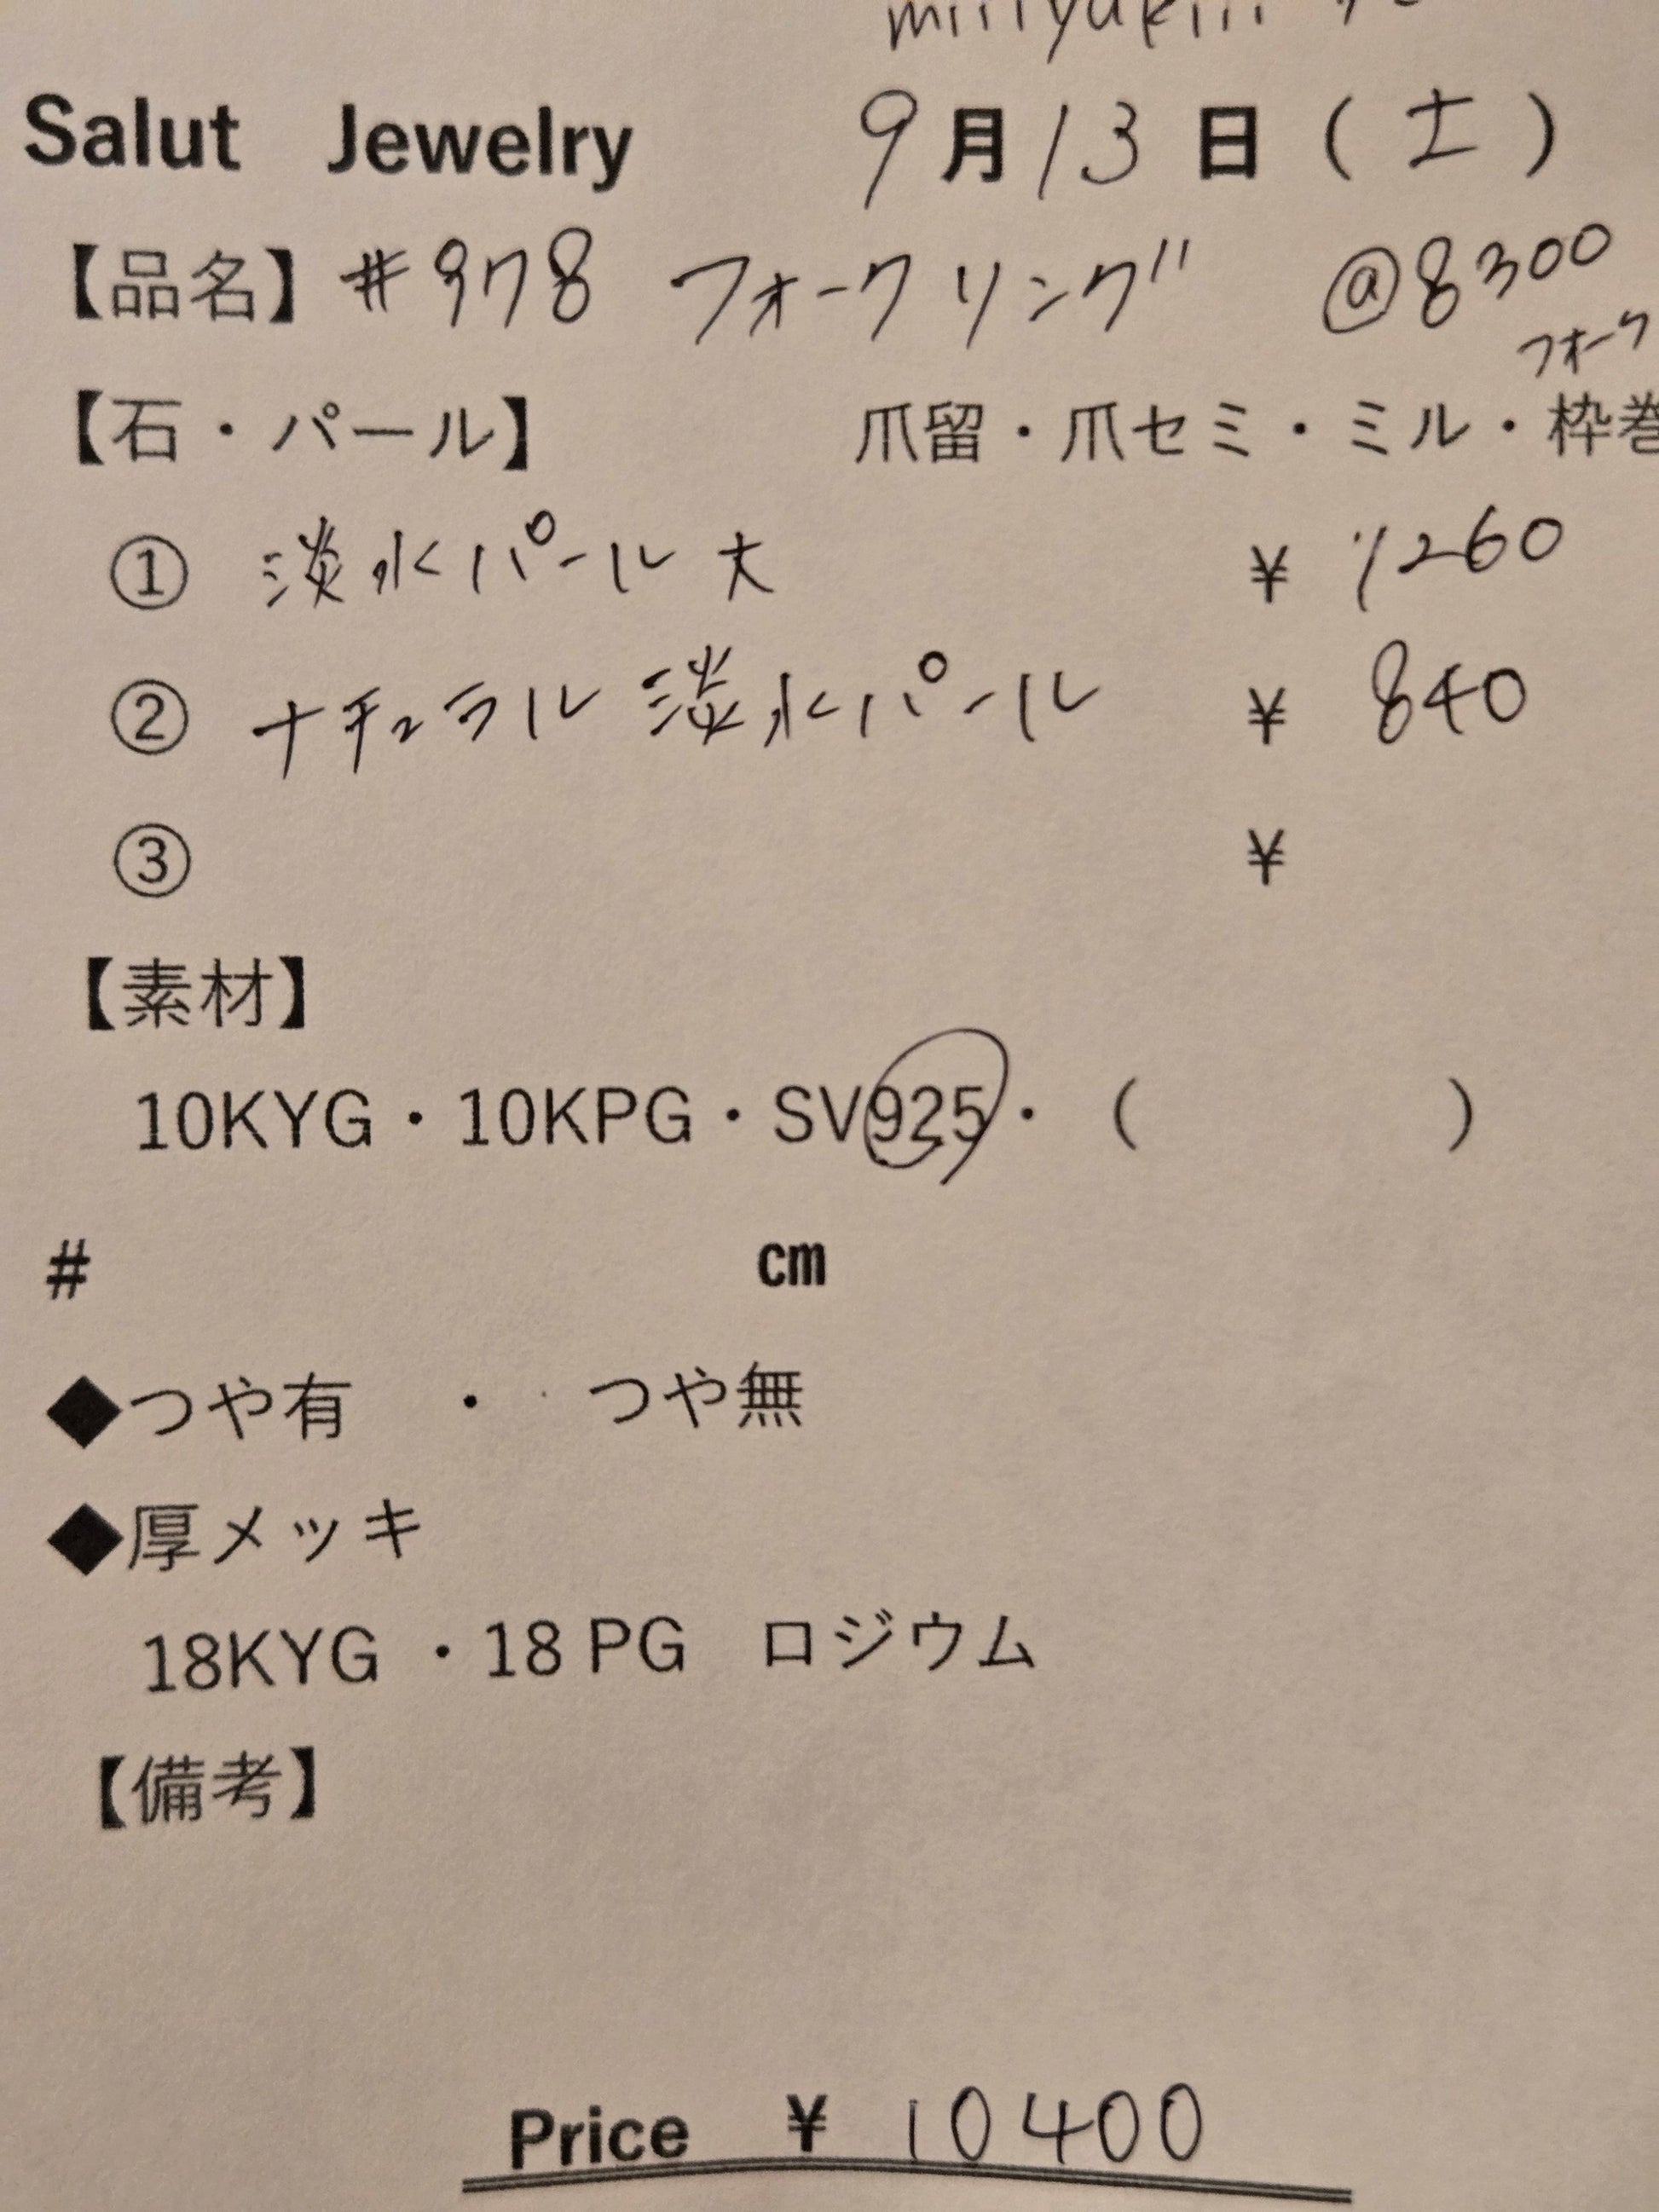 Salut Jewelry 9月13日(土)
【品名】#978 フォークリング @8300
フォーク
【石・パール】 爪留・爪セミ・ミル・枠巻
① 淡水パール大 ¥1260
② ナチュラル淡水パール ¥840
③ ¥
【素材】
10KYG・10KPG・SV925・( )
# cm
◆つや有 ・ つや無
◆厚メッキ
18KYG ・18 PG ロジウム
【備考】
Price ¥10400